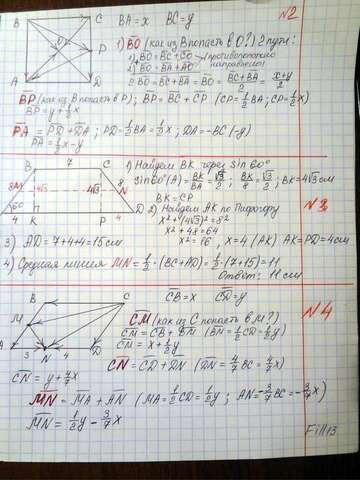 B C BA = x BC = y N2
O P
A D
1) BO (как из B попасть в O?) 2 пути:
1) BO = BC + CO (противоположного
2) BO = BA + AO направления)
2BO = BC + BA = BO = (BC + BA)/2 = (x + y)/2
BP (как из B попасть в P); BP = BC + CP (CP = 1/2 BA; CP = 1/2 x)
BP = y + 1/2 x
PA = PD + DA; PD = 1/2 BA = 1/2 x; DA = -BC (-y)
PA = 1/2 x - y
B 7 C
8 M 4√3 4√3 8 N
60°
A 4 K P 4 D
1) Найдем BK через sin 60°
Sin 60° (A) = BK/BA = √3/2; BK/8 = √3/2; BK = 4√3 см
BK = CP
2) Найдем AK по Пифагору
x² + (4√3)² = 8²
x² + 48 = 64
x² = 16, x = 4 (AK) AK = PD = 4см
N3
3) AD = 7+4+4 = 15 см
4) Средняя линия MN = 1/2 · (BC + AD) = 1/2 · (7 + 15) = 11
Ответ: 11 см
B C CB = x CD = y N4
M
A 3 N 4 D
CM (как из C попасть в M?)
CM = CB + BM (BM = 1/2 CD = 1/2 y)
CM = x + 1/2 y
CN = CD + DN (DN = 4/7 BC = 4/7 x)
CN = y + 4/7 x
MN = MA + AN (MA = 1/2 CD = 1/2 y; AN = -3/7 BC = -3/7 x)
MN = 1/2 y - 3/7 x
Fil113